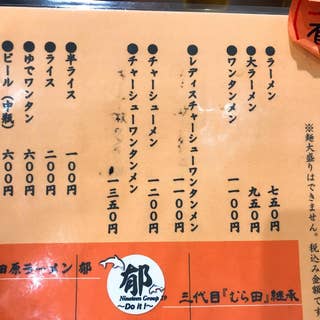 ●ラーメン 七五〇円
●大ラーメン 九五〇円
●ワンタンメン 一一〇〇円
●レディスチャーシューワンタンメン 一一〇〇円
●チャーシューメン 一二〇〇円
●チャーシューワンタンメン 一三五〇円
●半ライス 一〇〇円
●ライス 二〇〇円
●ゆでワンタン 六〇〇円
●ビール(中瓶) 六〇〇円
※麺大盛りはできません。税込み金額です
田原ラーメン 郁
郁
Nineteen Group 19
~Do it!~
三代目『むら田』継承